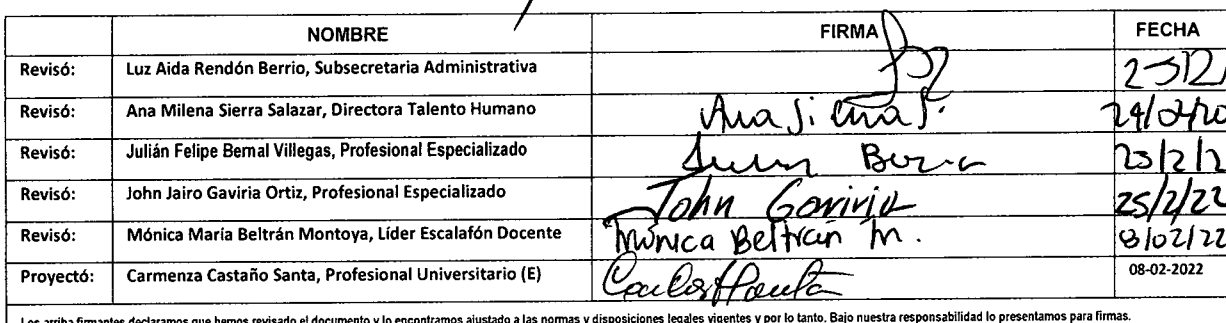 NOMBRE FIRMA FECHA
Revisó: Luz Aida Rendón Berrio, Subsecretaria Administrativa
Revisó: Ana Milena Sierra Salazar, Directora Talento Humano Ana Sierra S.
Revisó: Julián Felipe Bernal Villegas, Profesional Especializado 25/2/2
Revisó: John Jairo Gaviria Ortiz, Profesional Especializado John Gaviria 25/2/22
Revisó: Mónica María Beltrán Montoya, Líder Escalafón Docente Mónica Beltrán M. 8/02/22
Proyectó: Carmenza Castaño Santa, Profesional Universitario (E) 08-02-2022
Los arriba firmantes declaramos que hemos revisado el documento y lo encontramos ajustado a las normas y disposiciones legales vigentes y por lo tanto. Bajo nuestra responsabilidad lo presentamos para firmas.